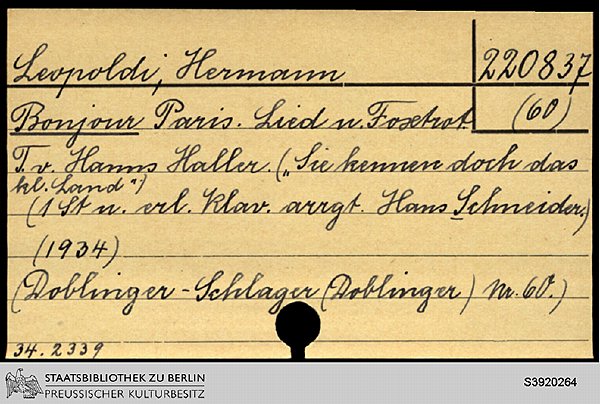 Leopoldi, Hermann
220837
Bonjour Paris. Lied u. Foxtrot.
(60)
T. v. Hanns Haller. („Sie kennen doch das
kl. Land“)
(1 St u. erl. Klav. arrgt. Hans Schneider.)
(1934)
(Doblinger-Schlager (Doblinger) Nr. 60.)
34. 2339
STAATSBIBLIOTHEK ZU BERLIN
PREUSSISCHER KULTURBESITZ
S3920264